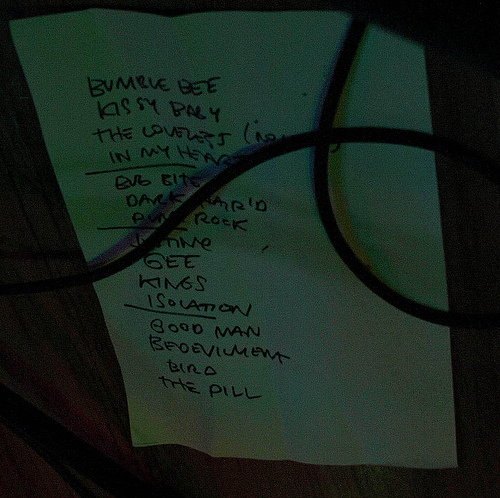 BUMBLE BEE
KISSY BABY
THE LOVELESS
IN MY HEART
BUG BITE
DARK HAIR'D
PUNK ROCK
JUSTINE
GEE
KINGS
ISOLATION
GOOD MAN
BEDEVILMENT
BIRD
THE PILL